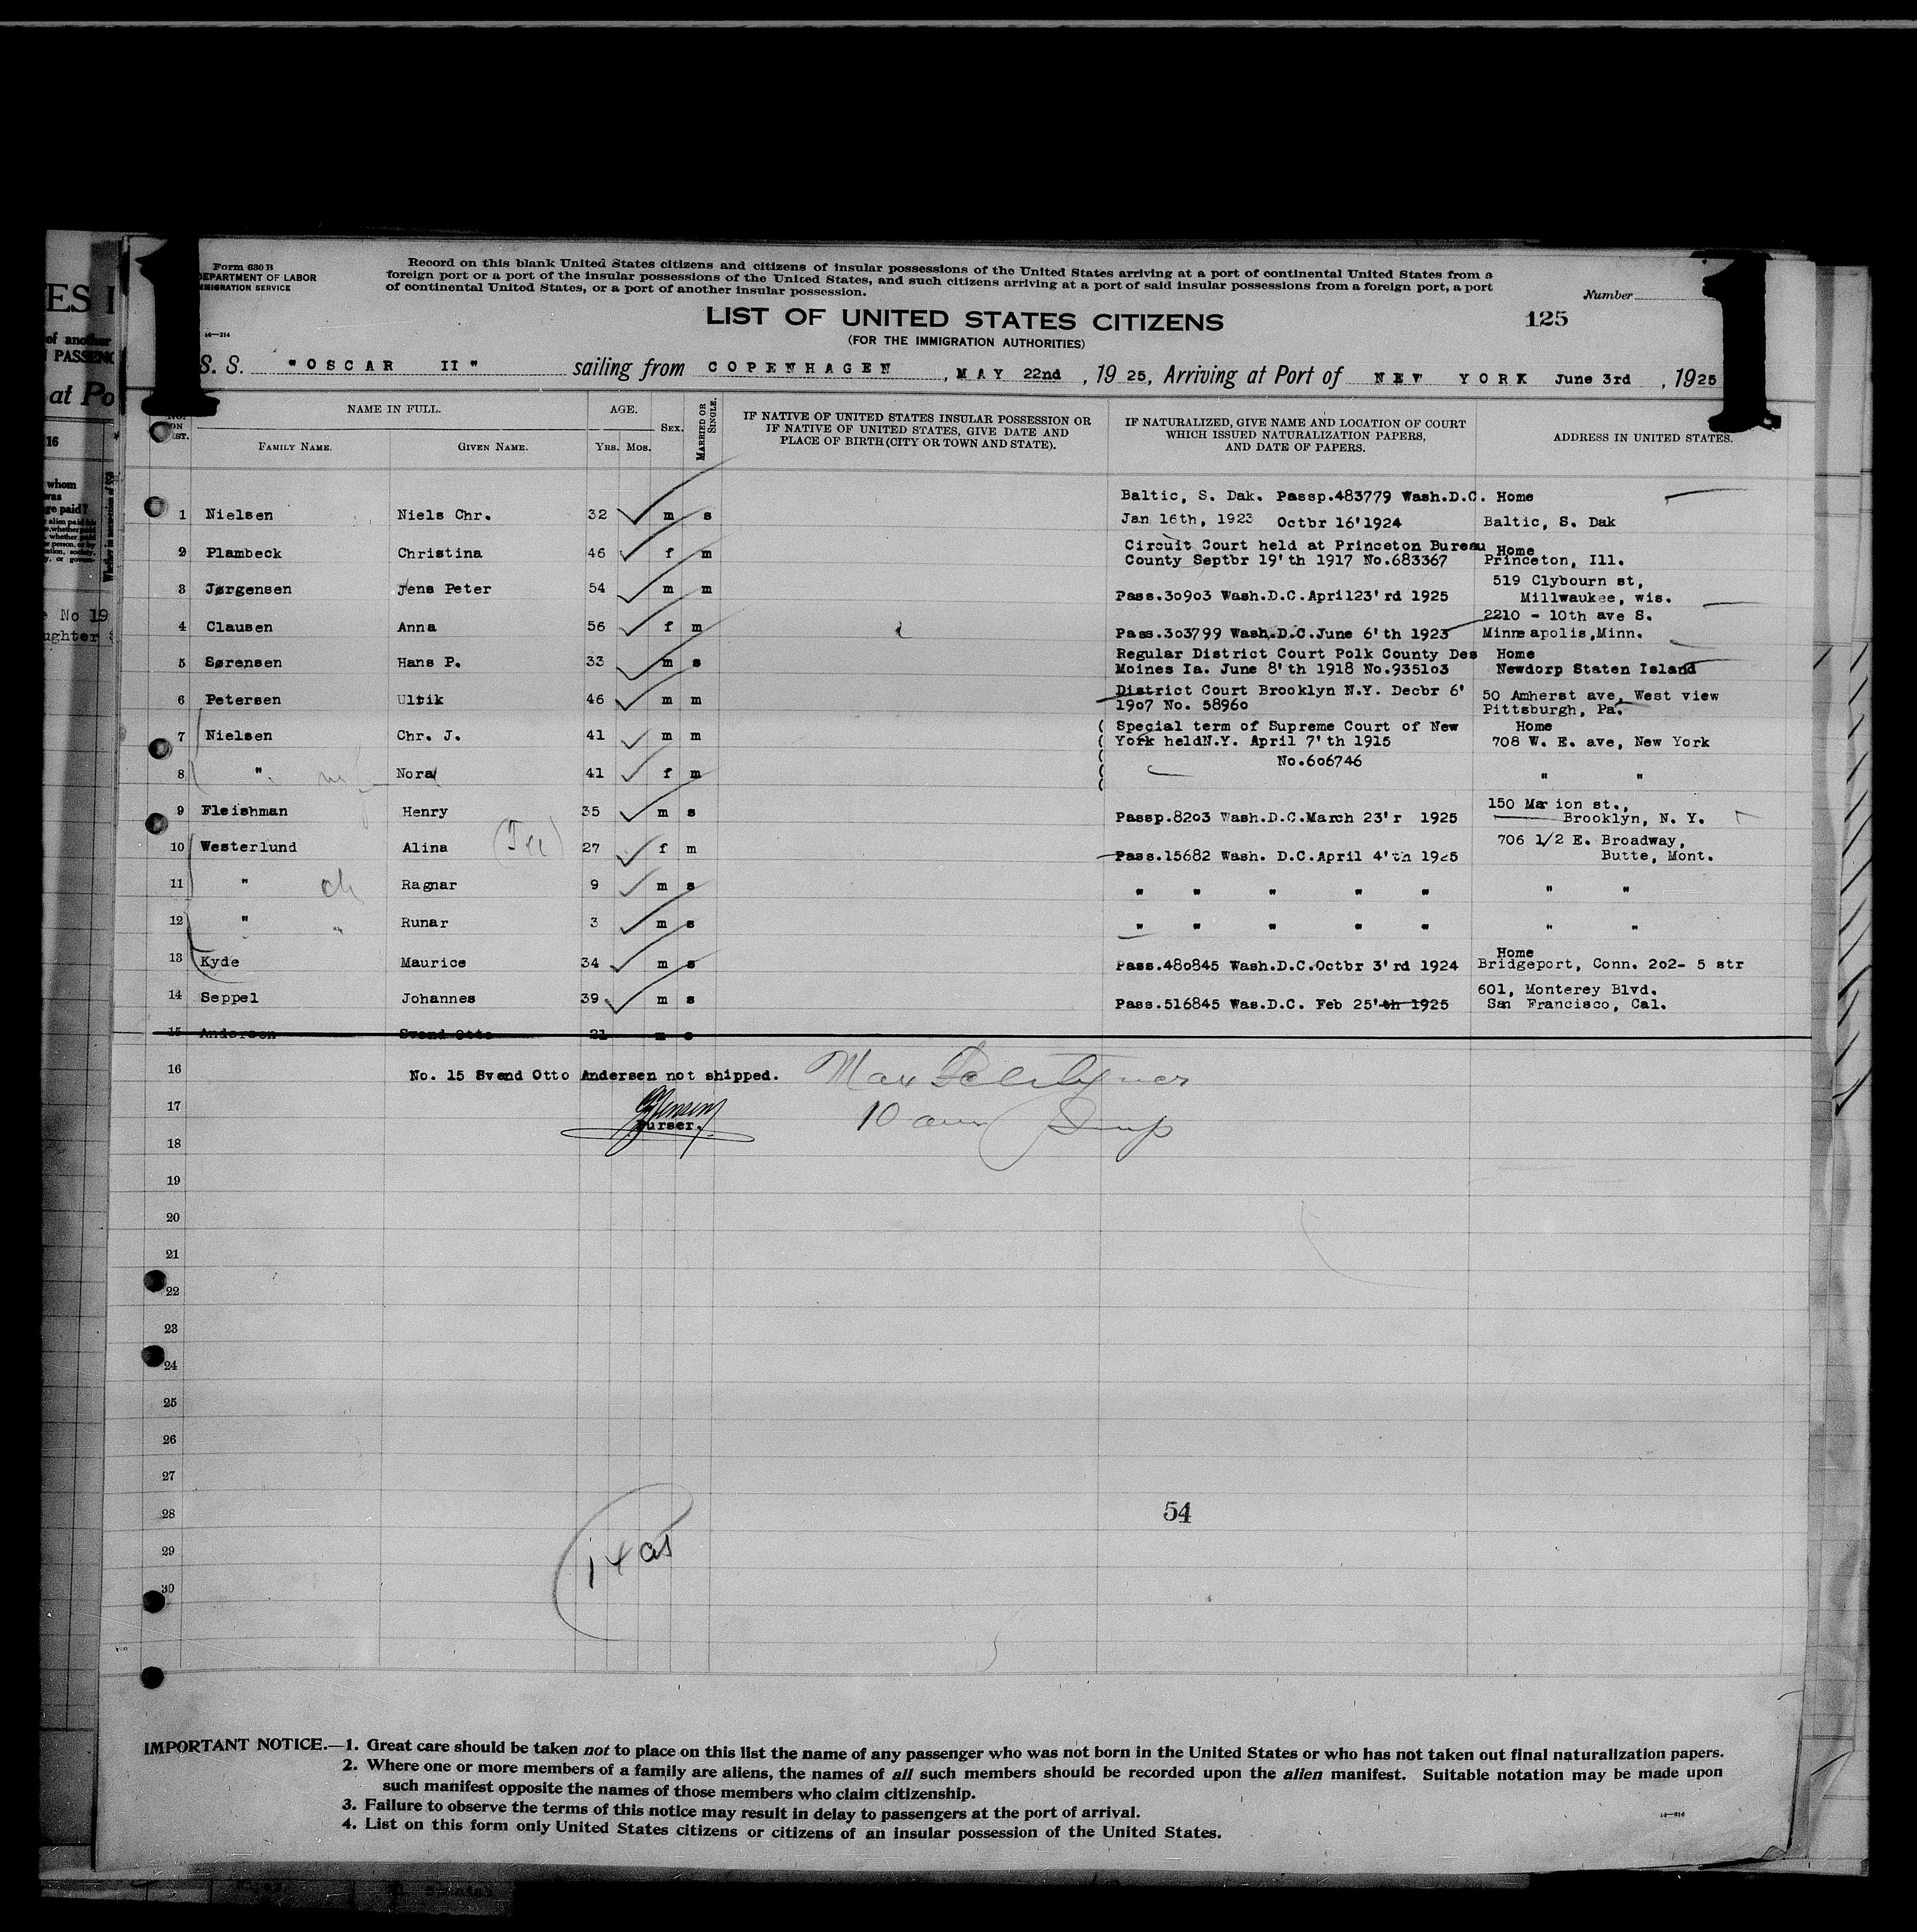 Form 630 B
DEPARTMENT OF LABOR
IMMIGRATION SERVICE
14—214
Record on this blank United States citizens and citizens of insular possessions of the United States arriving at a port of continental United States from a
foreign port or a port of the insular possessions of the United States, and such citizens arriving at a port of said insular possessions from a foreign port, a port
of continental United States, or a port of another insular possession.
Number
LIST OF UNITED STATES CITIZENS
125
(FOR THE IMMIGRATION AUTHORITIES)
S. S. "OSCAR II" sailing from COPENHAGEN, MAY 22nd, 1925, Arriving at Port of NEW YORK June 3rd, 1925
NAME IN FULL. AGE. SEX. MARRIED OR SINGLE. IF NATIVE OF UNITED STATES INSULAR POSSESSION OR
IF NATIVE OF UNITED STATES, GIVE DATE AND
PLACE OF BIRTH (CITY OR TOWN AND STATE).
IF NATURALIZED, GIVE NAME AND LOCATION OF COURT
WHICH ISSUED NATURALIZATION PAPERS,
AND DATE OF PAPERS.
ADDRESS IN UNITED STATES.
FAMILY NAME. GIVEN NAME. YRS. MOS.
Baltic, S. Dak. Passp.483779 Wash.D.C. Home
1 Nielsen Niels Chr. 32 m s Jan 16th, 1923 Octbr 16'1924 Baltic, S. Dak
Circuit Court held at Princeton Bureau Home
2 Plambeck Christina 46 f m County Septbr 19'th 1917 No.683367 Princeton, Ill.
519 Clybourn st,
3 Jørgensen Jens Peter 54 m m Pass.30903 Wash.D.C.April23'rd 1925 Millwaukee, wis.
2210 - 10th ave S.
4 Clausen Anna 56 f m Pass.303799 Wash.D.C.June 6'th 1923 Minneapolis,Minn.
Regular District Court Polk County Des Home
5 Sørensen Hans P. 33 m s Moines Ia. June 8'th 1918 No.935103 Newdorp Staten Island
District Court Brooklyn N.Y. Decbr 6' 50 Amherst ave, West view
6 Petersen Ulrik 46 m m 1907 No. 58960 Pittsburgh, Pa.
Special term of Supreme Court of New Home
7 Nielsen Chr. J. 41 m m York heldN.Y. April 7'th 1915 708 W. E. ave, New York
No.606746
8 " Nora 41 f m " "
150 Marion st.,
9 Fleishman Henry 35 m s Passp.8203 Wash.D.C.March 23'r 1925 Brooklyn, N. Y.
706 1/2 E. Broadway,
10 Westerlund Alina 27 f m Pass.15682 Wash. D.C.April 4'th 1925 Butte, Mont.
11 " ch Ragnar 9 m s " " " " " " "
12 " " Runar 3 m s " " " " " " "
Home
13 Kyde Maurice 34 m s Pass.480845 Wash.D.C.Octbr 3'rd 1924 Bridgeport, Conn. 202- 5 str
601, Monterey Blvd.
14 Seppel Johannes 39 m s Pass.516845 Was.D.C. Feb 25'th 1925 San Francisco, Cal.
15 Andersen Svend Otto 21 m s
16 No. 15 Svend Otto Andersen not shipped.
17 10 am
Purser.
18
19
20
21
22
23
24
25
26
27
28 54
29
30
IMPORTANT NOTICE.—1. Great care should be taken not to place on this list the name of any passenger who was not born in the United States or who has not taken out final naturalization papers.
2. Where one or more members of a family are aliens, the names of all such members should be recorded upon the alien manifest. Suitable notation may be made upon
such manifest opposite the names of those members who claim citizenship.
3. Failure to observe the terms of this notice may result in delay to passengers at the port of arrival.
14—214
4. List on this form only United States citizens or citizens of an insular possession of the United States.